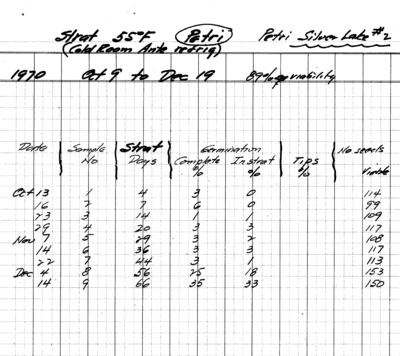 Strat 55°F (Petri) Petri Silver Lake #2
(Cold Room Ante refrig)
1970 Oct 9 to Dec 19 89% viability
Date Sample No Strat Days Germination Complete % Instrat % Tips % No seeds Viable
Oct 13 1 4 3 0 114
16 2 7 6 0 99
23 3 14 1 1 109
29 4 20 3 3 117
Nov 7 5 29 3 2 108
14 6 36 3 3 117
22 7 44 3 1 113
Dec 4 8 56 25 18 153
14 9 66 35 33 150